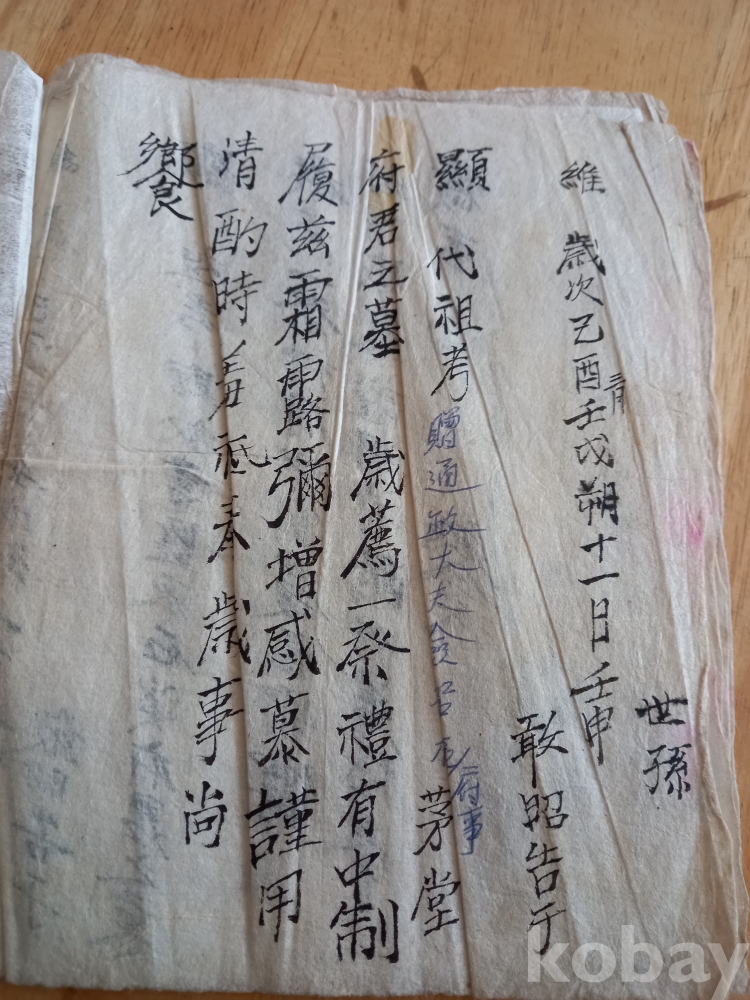 維 歲次己酉 壬戌朔十一日壬申
世孫
敢昭告于
顯 代祖考 贈通政大夫僉 府事 茅堂
府君之墓 歲薦一祭禮有中制
履玆霜露彌增感慕謹用
清酌時羞祗奉歲事尙
饗
kobay